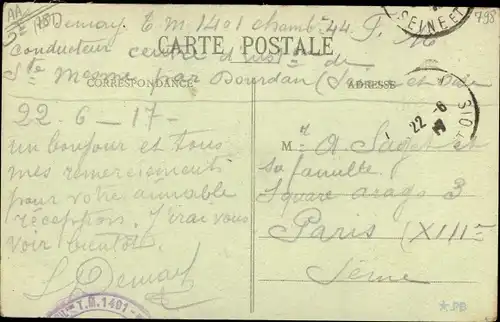 AA
798
Demay, T M 1401 chamb. 44 F. M
SEINE ET
CARTE POSTALE
conducteur centre d'inst.on de
Ste Mesme par Dourdan (Seine et Oise
CORRESPONDANCE
ADRESSE
22-6-17-
un bonjour et tous
mes remerciements
pour votre aimable
réception. J'irai vous
voir bientôt.
L Demay
T.M. 1401
22-6
M r A. Saget et
sa famille
Square arago 3
Paris (XIII e
Seine